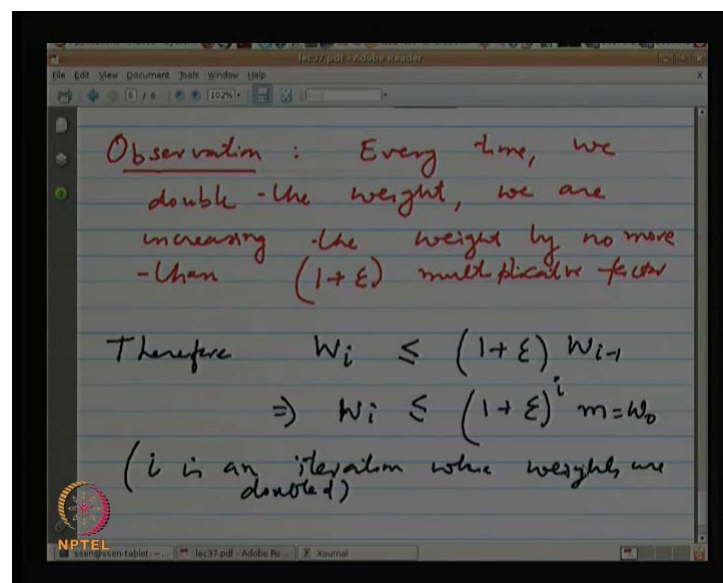 lec37.pdf - Adobe Reader
File Edit View Document Tools Window Help
6 / 6 102%
Observation : Every time, we
double the weight, we are
increasing the weight by no more
than (1+ε) multiplicative factor
Therefore Wi ≤ (1+ε) Wi-1
⇒ Wi ≤ (1+ε)^i m=W0
(i is an iteration where weights are
doubled)
NPTEL
ssen@ssen-tablet: ~... lec37.pdf - Adobe Re... Xournal